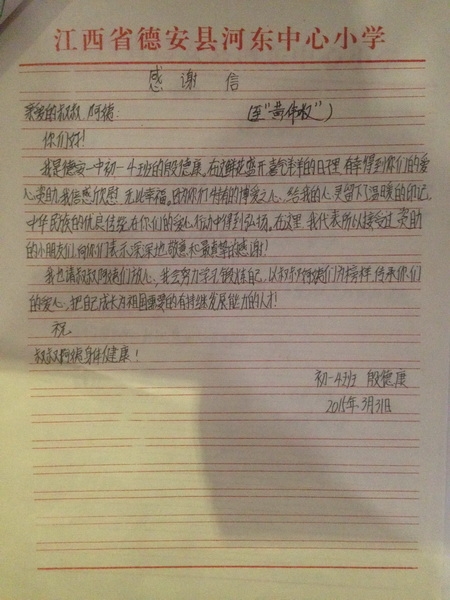 江西省德安县河东中心小学
感谢信
亲爱的叔叔、阿姨:
你们好!
我是德安一中初一4班的殷德康。在这鲜花盛开喜气洋洋的日子里,有幸得到你们的爱
心资助,我倍感欣慰,无比幸福。因为你们特有的博爱之心,给我的人生留下了温暖的印记,
中华民族的优良传统在你们的爱心行动中得到弘扬。在这里,我代表所以接受过资助
的小朋友们,向你们表示深深地敬意和最真挚的感谢!
我也请叔叔阿姨们放心,我会努力学习,锻炼自己,以叔叔阿姨们为榜样,传承你们
的爱心,把自己成长为祖国需要的有持续发展能力的人才!
祝
叔叔阿姨身体健康!
初一4班 殷德康
2015年3月31日